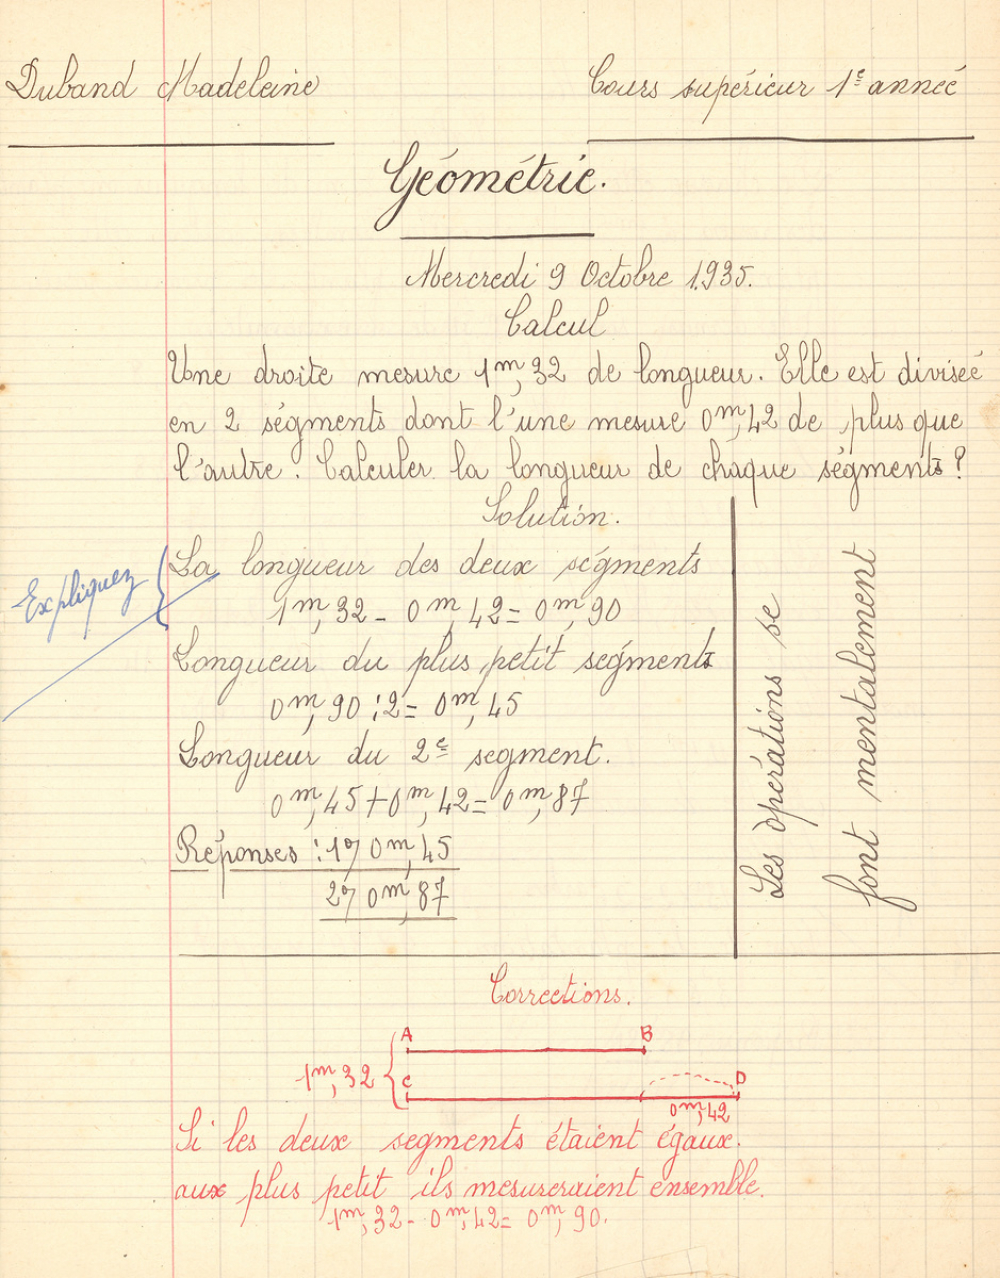 Duband Madeleine
Cours supérieur 1e année
Géométrie.
Mercredi 9 Octobre 1935.
Calcul
Une droite mesure 1m,32 de longueur. Elle est divisée
en 2 ségments dont l'une mesure 0m,42 de plus que
l'autre. Calculer la longueur de chaque ségments?
Solution.
La longueur des deux ségments
1m,32 - 0m,42 = 0m,90
Expliquez
Longueur du plus petit segments
0m,90 : 2 = 0m,45
Longueur du 2e segment.
0m,45 + 0m,42 = 0m,87
Réponses : 1°) 0m,45
2°) 0m,87
Les opérations se
font mentalement
Corrections.
A B
1m,32
C D
0m,42
Si les deux segments étaient égaux.
aux plus petit ils mesureraient ensemble.
1m,32 - 0m,42 = 0m,90.